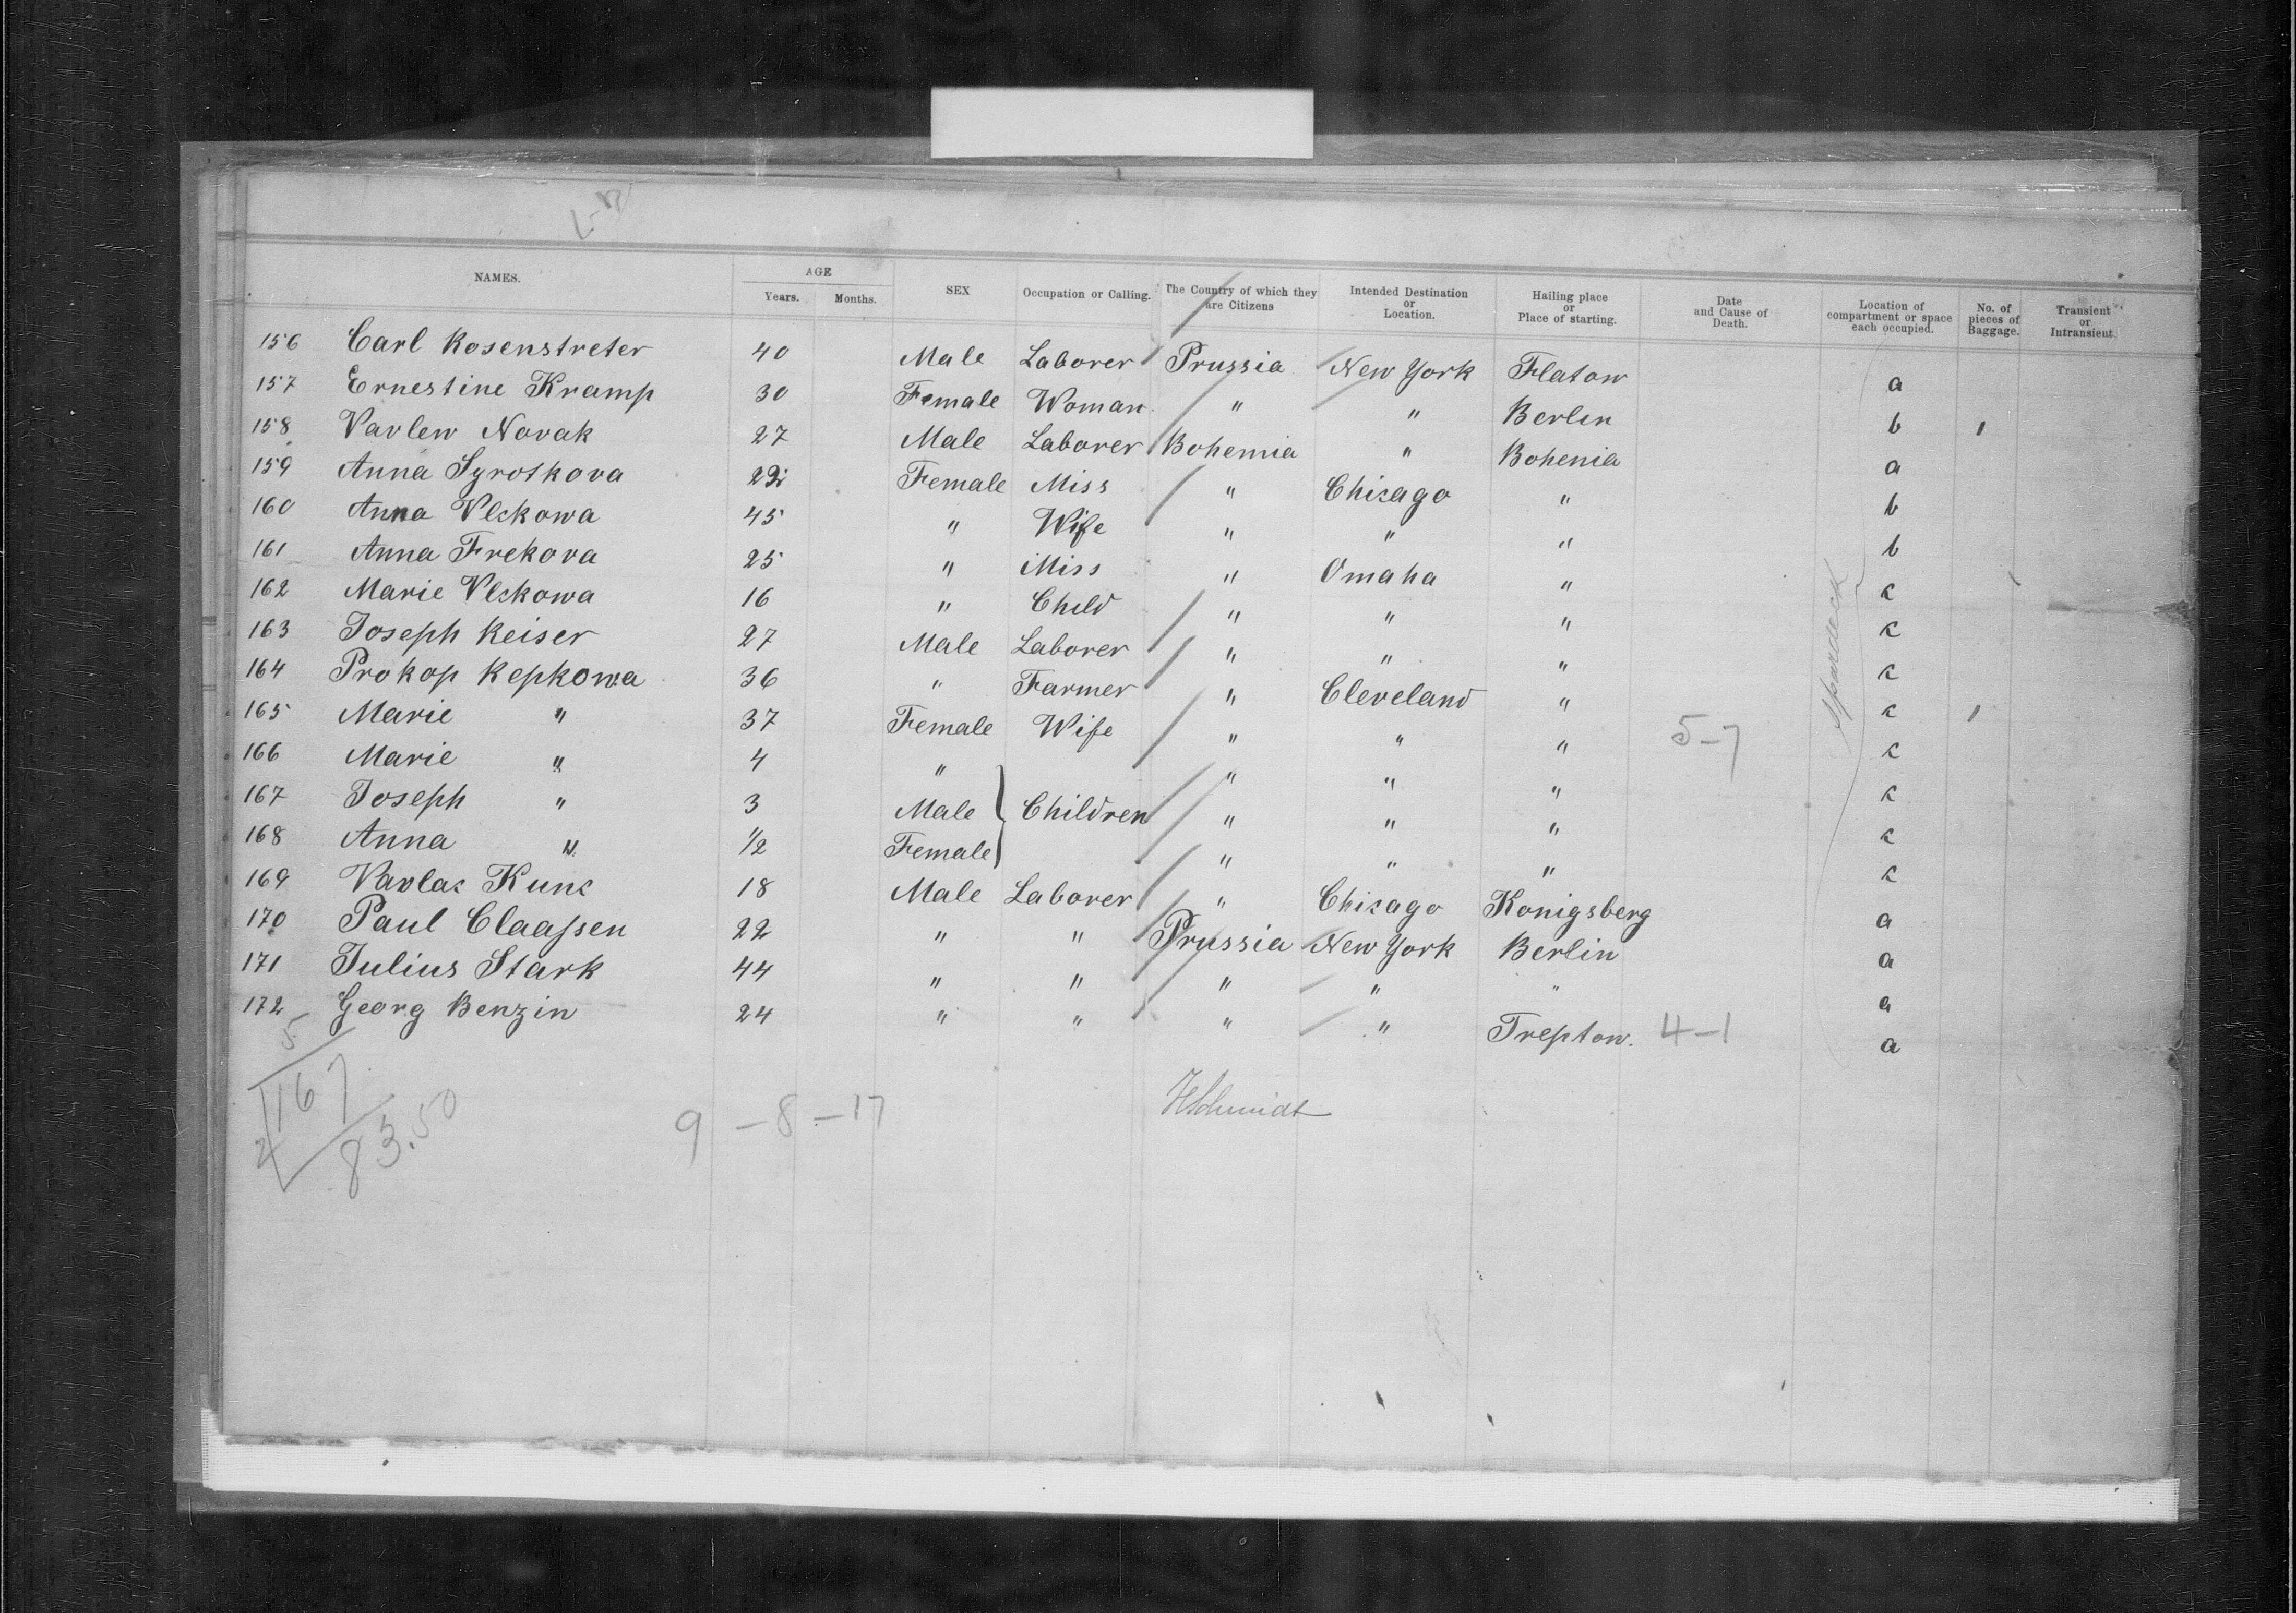 L-n
NAMES. AGE Years. Months. SEX Occupation or Calling. The Country of which they are Citizens Intended Destination or Location. Hailing place or Place of starting. Date and Cause of Death. Location of compartment or space each occupied. No. of pieces of Baggage. Transient or Intransient.
156 Carl Rosenstreter 40 Male Laborer Prussia New York Flatow a
157 Ernestine Kramp 30 Female Woman " " Berlin b 1
158 Vavlew Novak 27 Male Laborer Bohemia " Bohenia a
159 Anna Syrotkova 22 Female Miss " Chicago " b
160 Anna Vlckowa 45 " Wife " " " b
161 Anna Frekova 25 " Miss " Omaha " c
162 Marie Vlckowa 16 " Child " " " c
163 Joseph Keiser 27 Male Laborer " " " c
164 Prokop Kepkowa 36 " Farmer " Cleveland " c 1
165 Marie " 37 Female Wife " " " 5-7 c
166 Marie " 4 " " " " c
167 Joseph " 3 Male Children " " " c
168 Anna " 1/2 Female " " " c
169 Vavlac Kunc 18 Male Laborer " Chicago Konigsberg a
170 Paul Claaßen 22 " " Prussia New York Berlin a
171 Julius Stark 44 " " " " " a
172 Georg Benzin 24 " " " " Treptow. 4-1 a
Spardeck
5
2 167
83.50
9-8-17
HSchmidt